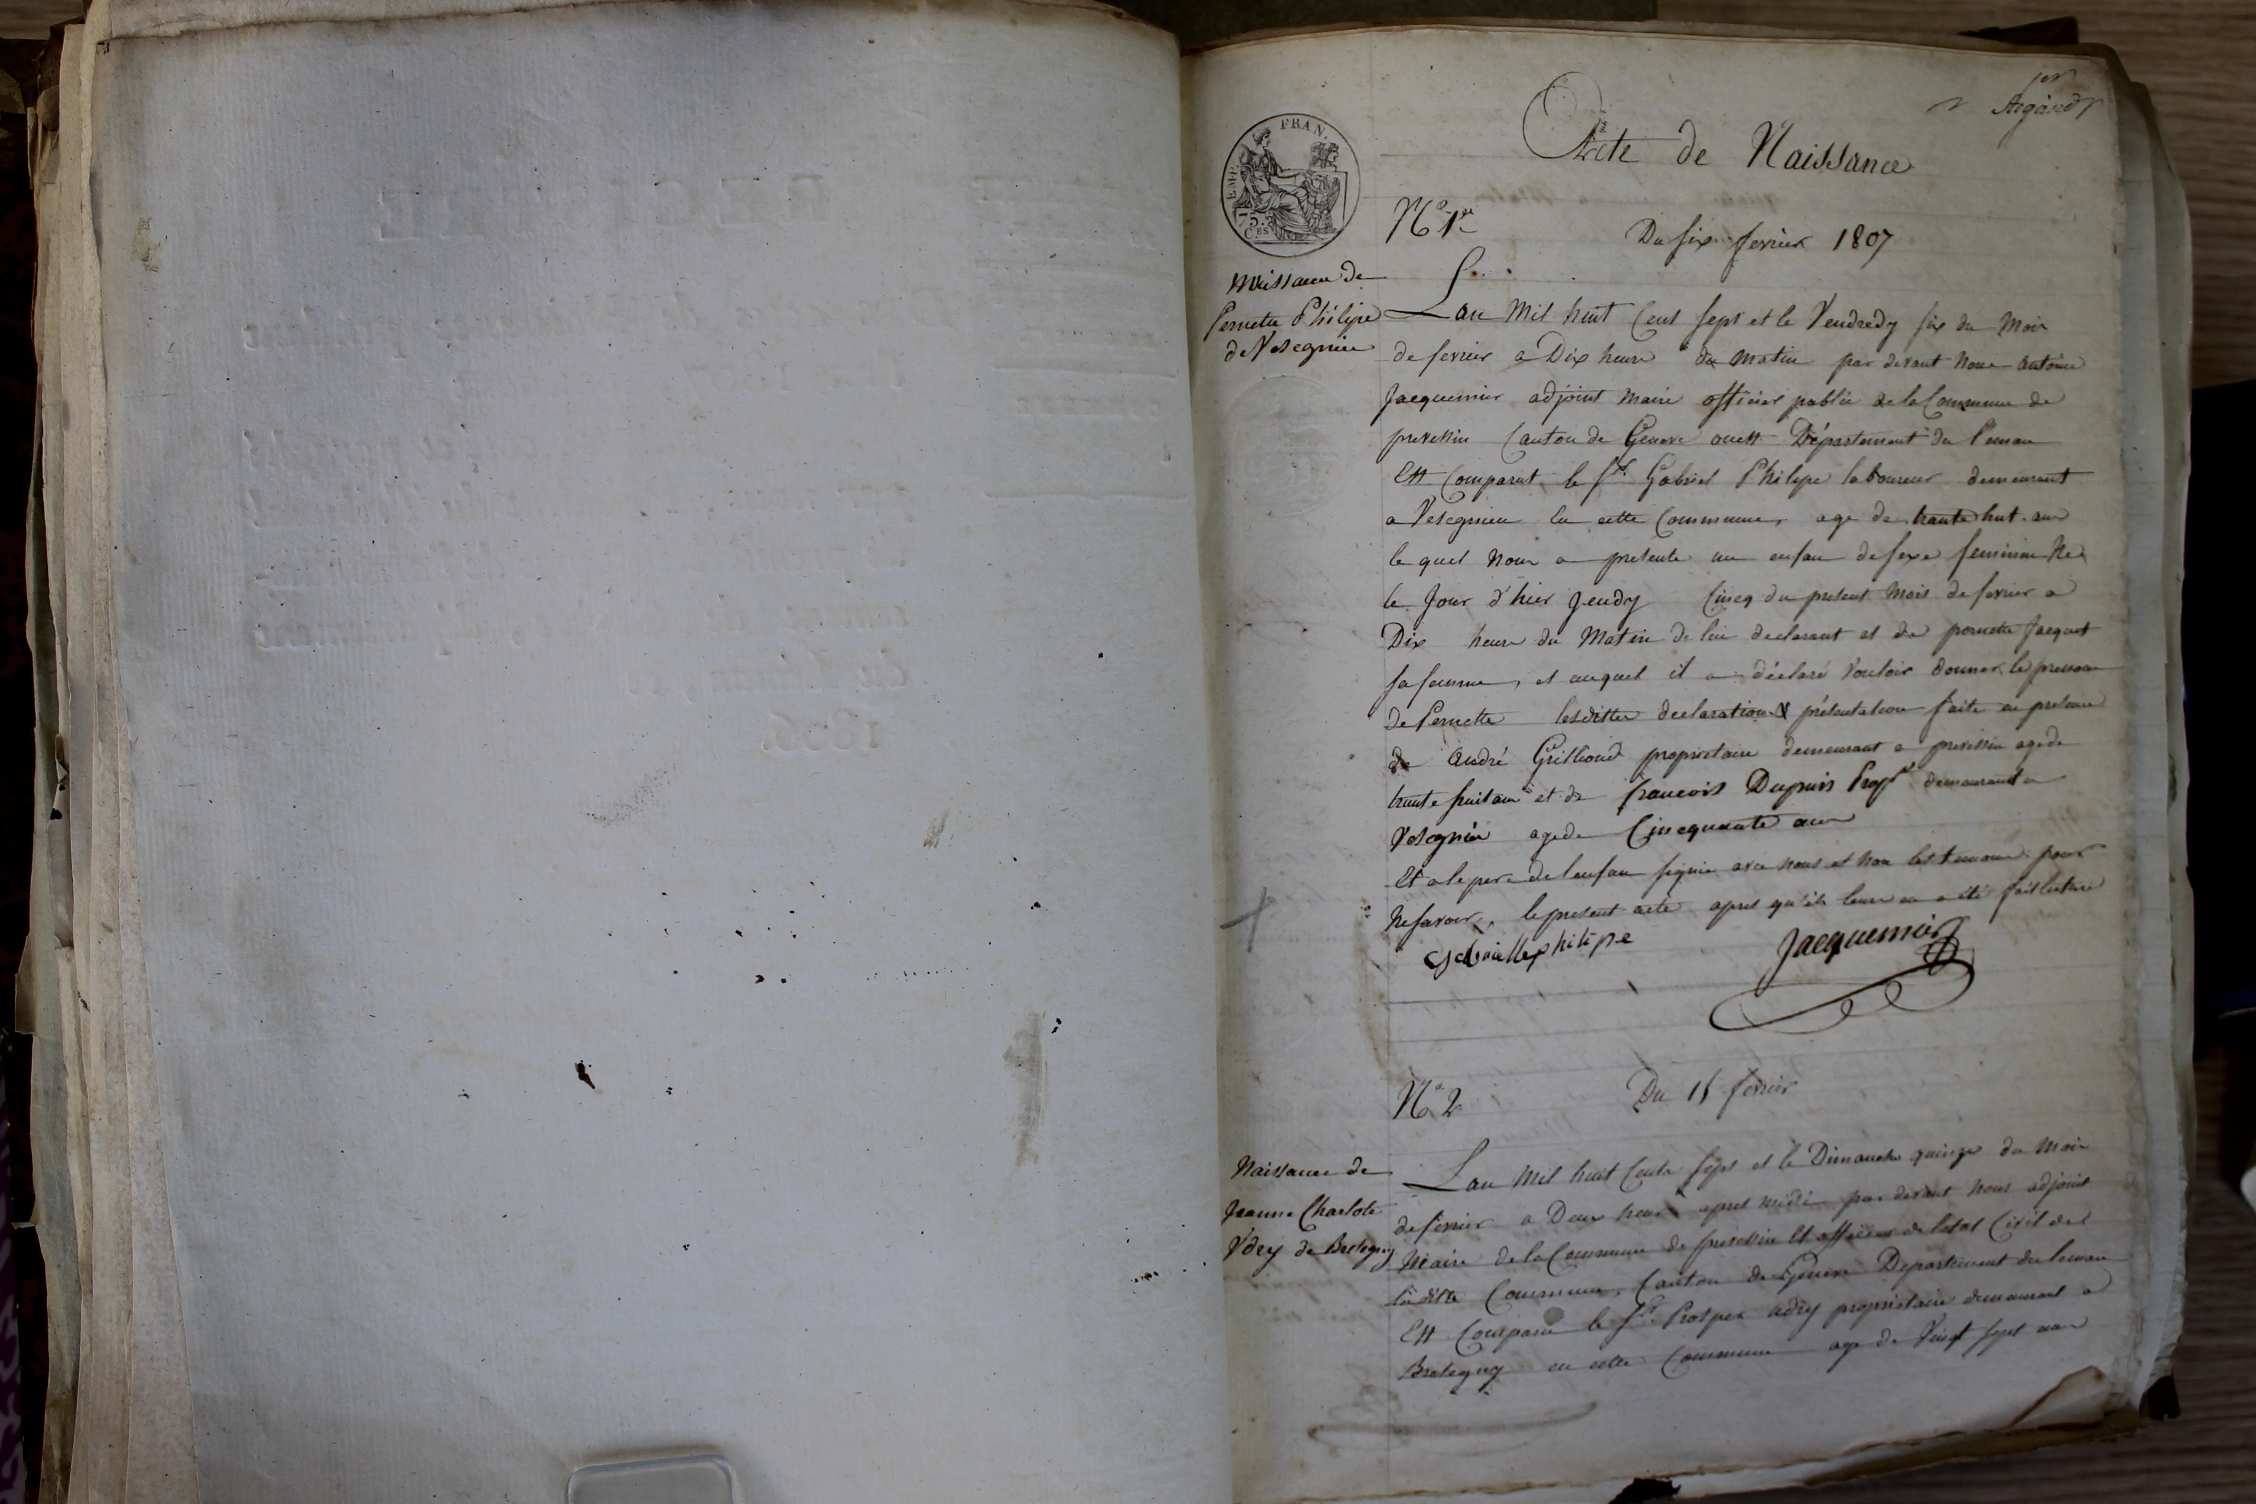 Acte de Naissance
EMP. FRAN.
75.
C.ES
N.o 1er
Du six fevrier 1807
Naissance de
Pernette Philipe
de Vesegnin
Lan Mil huit Cent sept et le Vendredy six du Mois
de fevrier a Dix heure du matin par devant Nous antoine
Jacquemier adjoint maire officier public de la Commune de
prevessin Canton de Geneve ouest Département du Leman
Est Comparut le Sr. Gabriel Philipe laboureur demeurant
a Vesegnin en cette Commune, age de trante huit ans
le quel Nous a presenté un enfan de sexe feminin Ne
le Jour d'hier Jeudy Cincq du present Mois de fevrier a
Dix heure du Matin de lui declarant et de pernette Jacquet
sa femme, et auquel il a déclaré Vouloir donner le prenom
de Pernette lesdittes declaration & présentation faite en presence
de André Grilliond propriétaire demeurant a prevessin age de
trante huit ans et de francois Dupuis Propre demeurant a
Vesegnin age de Cinequante ans
Et a le pere de lenfan signé avec nous et non les temoins pour
Ne savoir, le present acte apres qu'ils leurs en a été fait lecture
gabriellephilipe
Jacquemier
N.o 2
Du 15 fevrier
Naissance de
Jeanne Charlote
Vdry de Bretegny
Lan Mil huit Cents sept et le Dimanche quinze du Mois
de fevrier a Deux heures apres midi par devant Nous adjoint
Maire de la Commune de prevessin Et officier de letat Civil de
laditte Commune, Canton de Geneve Departement du leman
Est Comparu le Sr. Prosper udry propriétaire demeurant a
Bretegny en cette Commune age de Vingt sept ans